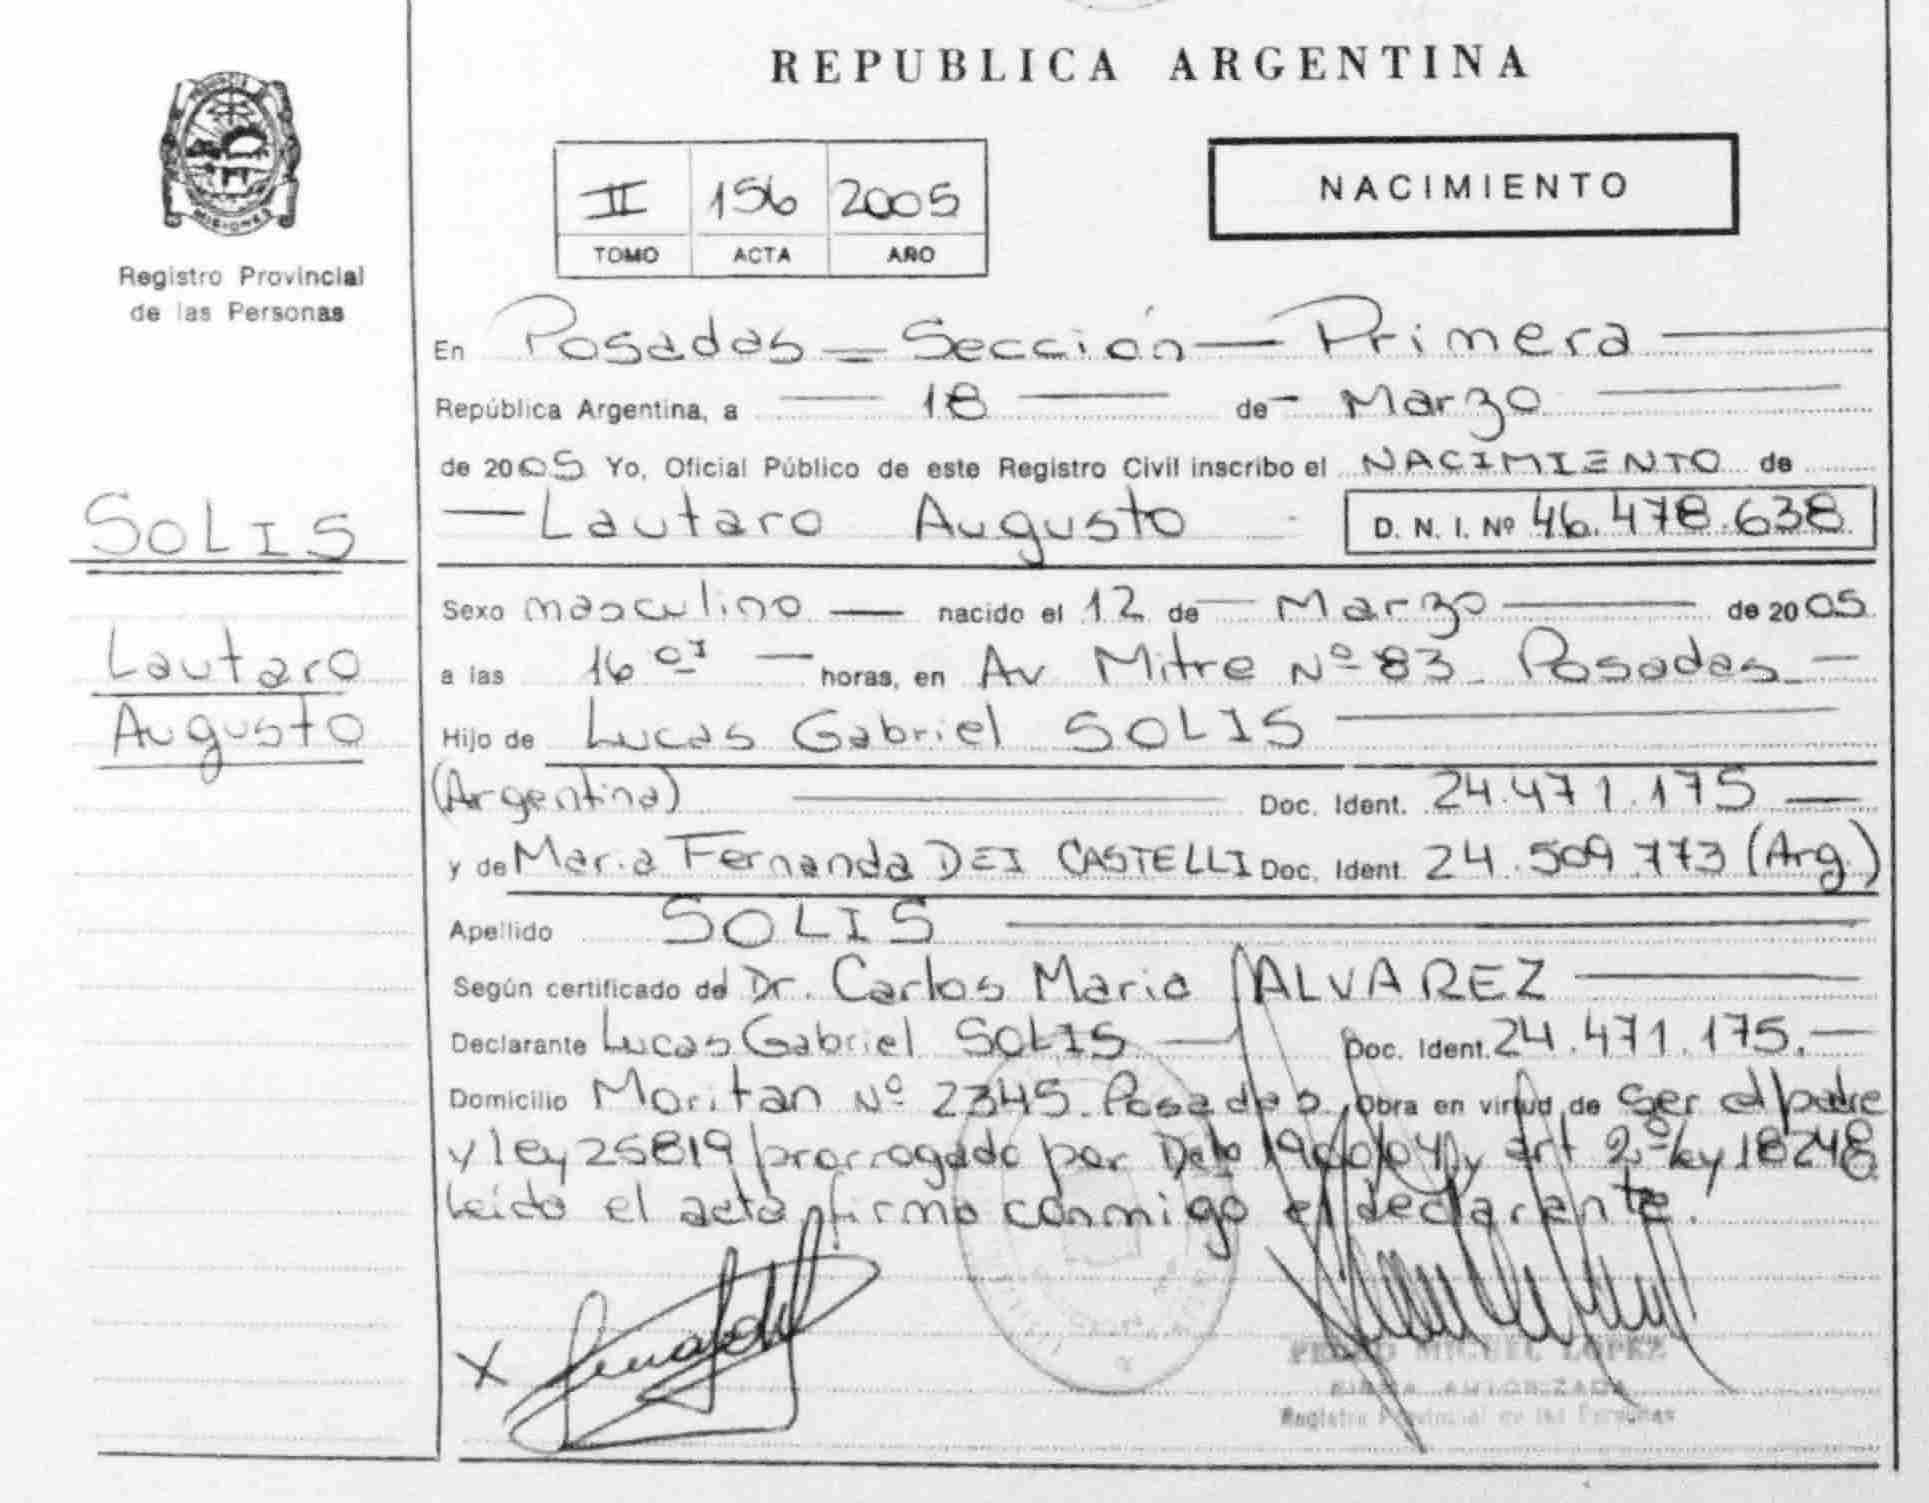 REPUBLICA ARGENTINA
PROVINCIA
MISIONES
Registro Provincial
de las Personas
II 156 2005
TOMO ACTA AÑO
NACIMIENTO
SOLIS
Lautaro
Augusto
En Posadas = Sección — Primera —
República Argentina, a — 18 — de — Marzo —
de 2005 Yo, Oficial Público de este Registro Civil inscribo el NACIMIENTO de
— Lautaro Augusto D. N. I. Nº 46.478.638
Sexo masculino — nacido el 12 de — Marzo — de 2005
a las 16 01 — horas, en Av Mitre Nº 83 - Posadas —
Hijo de Lucas Gabriel SOLIS —
(Argentina) — Doc. Ident. 24.471.175 —
y de Maria Fernanda DEI CASTELLI Doc. Ident. 24.509.773 (Arg.)
Apellido SOLIS —
Según certificado de Dr. Carlos Maria ALVAREZ —
Declarante Lucas Gabriel SOLIS — Doc. Ident. 24.471.175. —
Domicilio Moritan Nº 2345 Posadas, obra en virtud de ser el padre
y ley 25819 prorrogado por Dcto 1900/04 y art 2º ley 18248
Leida el acta firma conmigo el declarante.
X
PEDRO MIGUEL LOPEZ
FIRMA AUTORIZADA
Registro Provincial de las Personas